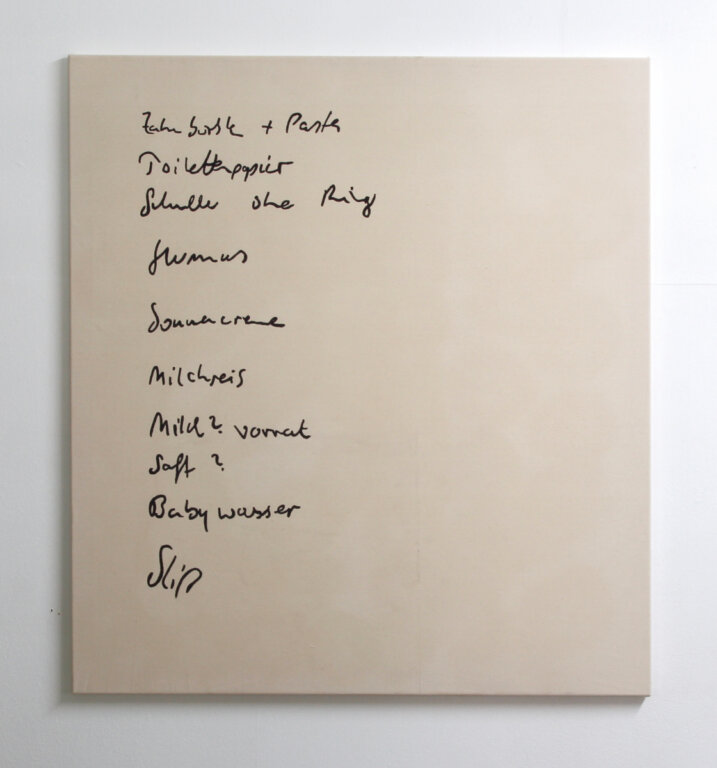 Zahnbürste + Pasta
Toilettenpapier
Schnuller ohne Ring
Humus
Sonnencreme
Milchreis
Milch? vorrat
Saft ?
Babywasser
Slip